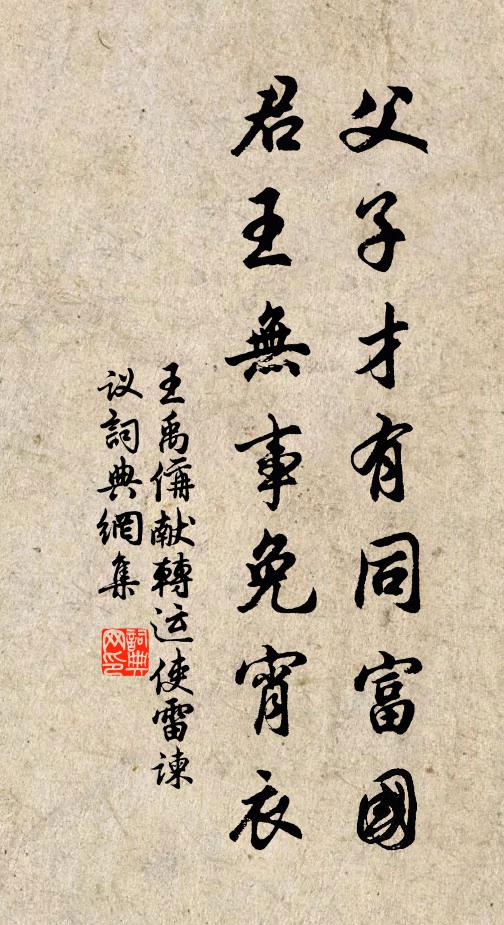 父子才有同富國
君王無事免宵衣
王禹偁献轉运使雷谏
议詞典網集
詞典
网印